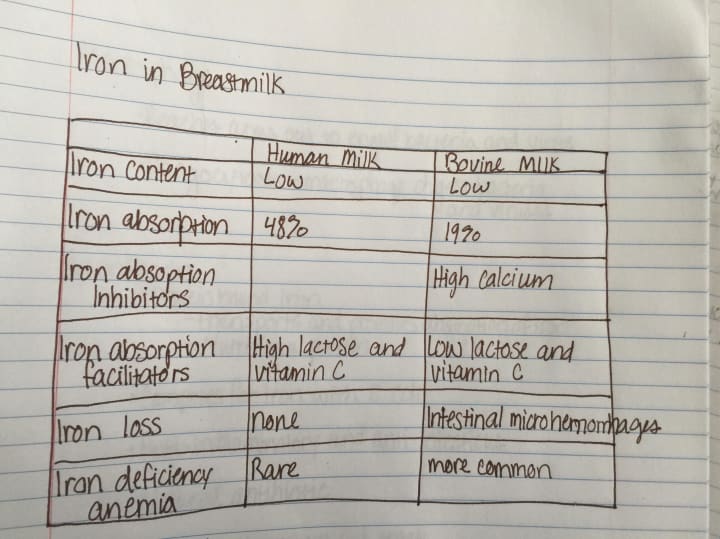 Iron in Breastmilk
Human Milk Bovine Milk
Iron content Low Low
Iron absorption 48% 19%
Iron absoption High calcium
Inhibitors
Iron absorption High lactose and Low lactose and
facilitators vitamin C vitamin C
Iron loss none Intestinal microhemorrhages
Iron deficiency Rare more common
anemia